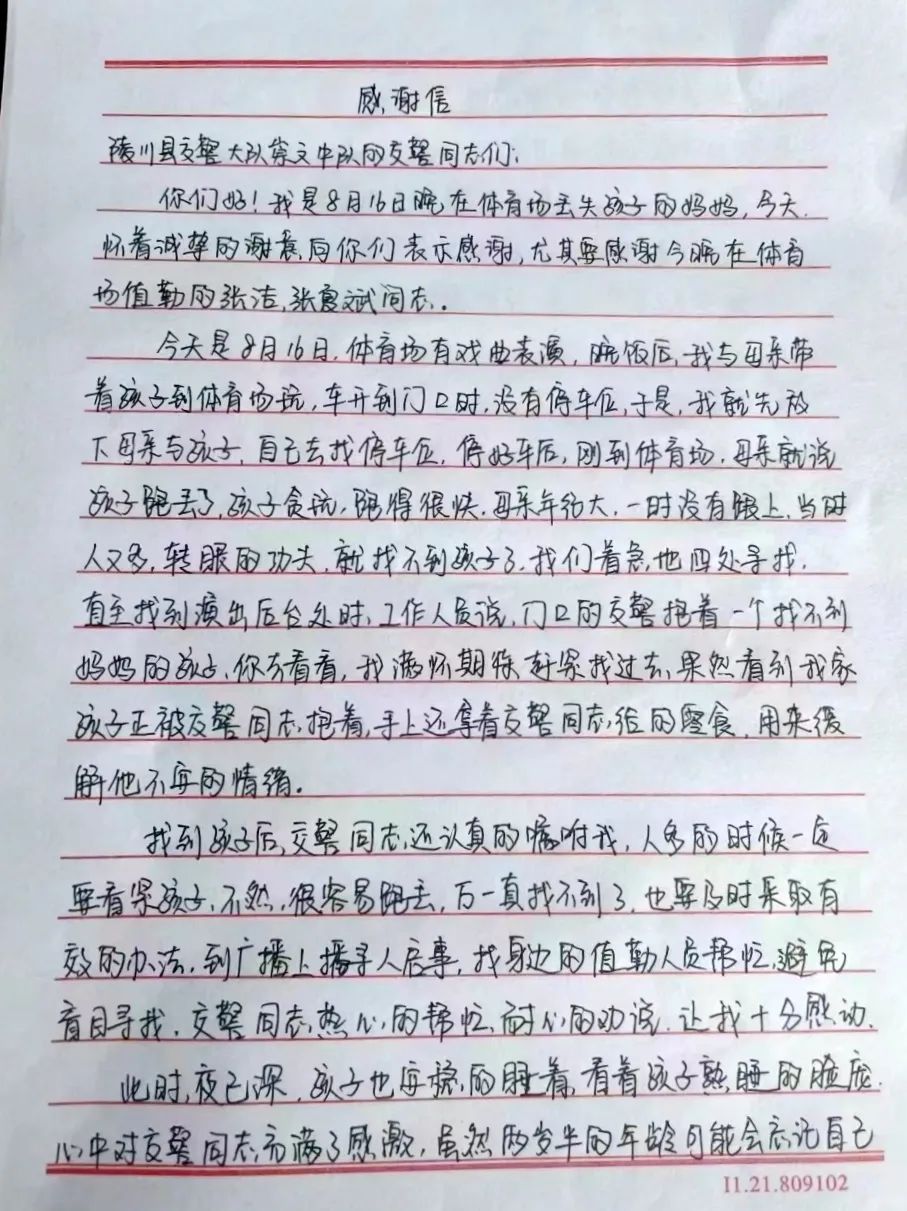 感谢信
陵川县交警大队崇文中队的交警同志们:
你们好!我是8月16日晚在体育场丢失孩子的妈妈,今天,
怀着诚挚的谢意,向你们表示感谢,尤其要感谢今晚在体育
场值勤的张洁,张震斌同志.
今天是8月16日,体育场有戏曲表演,晚饭后,我与母亲带
着孩子到体育场玩,车开到门口时,没有停车位,于是,我就先放
下母亲与孩子,自己去找停车位,停好车后,刚到体育场,母亲就说
孩子跑丢了,孩子贪玩,跑得很快,母亲年纪大,一时没有跟上,当时
人又多,转眼的功夫,就找不到孩子了,我们着急,也四处寻找,
直至找到演出后台处时,工作人员说,门口的交警抱着一个找不到
妈妈的孩子,你去看看,我满怀期待,赶紧找过去,果然看到我家
孩子正被交警同志抱着,手上还拿着交警同志给的零食,用来缓
解他不安的情绪。
找到孩子后,交警同志还认真的嘱咐我,人多的时候一定
要看紧孩子,不然,很容易跑丢,万一真找不到了,也要及时采取有
效的办法,到广播上播寻人启事,找身边的值勤人员帮忙,避免
盲目寻找,交警同志热心的帮忙,耐心的劝说,让我十分感动.
此时,夜已深,孩子也安稳的睡着,看着孩子熟睡的脸庞,
心中对交警同志充满了感激,虽然两岁半的年龄可能会忘记自己
11.21.809102